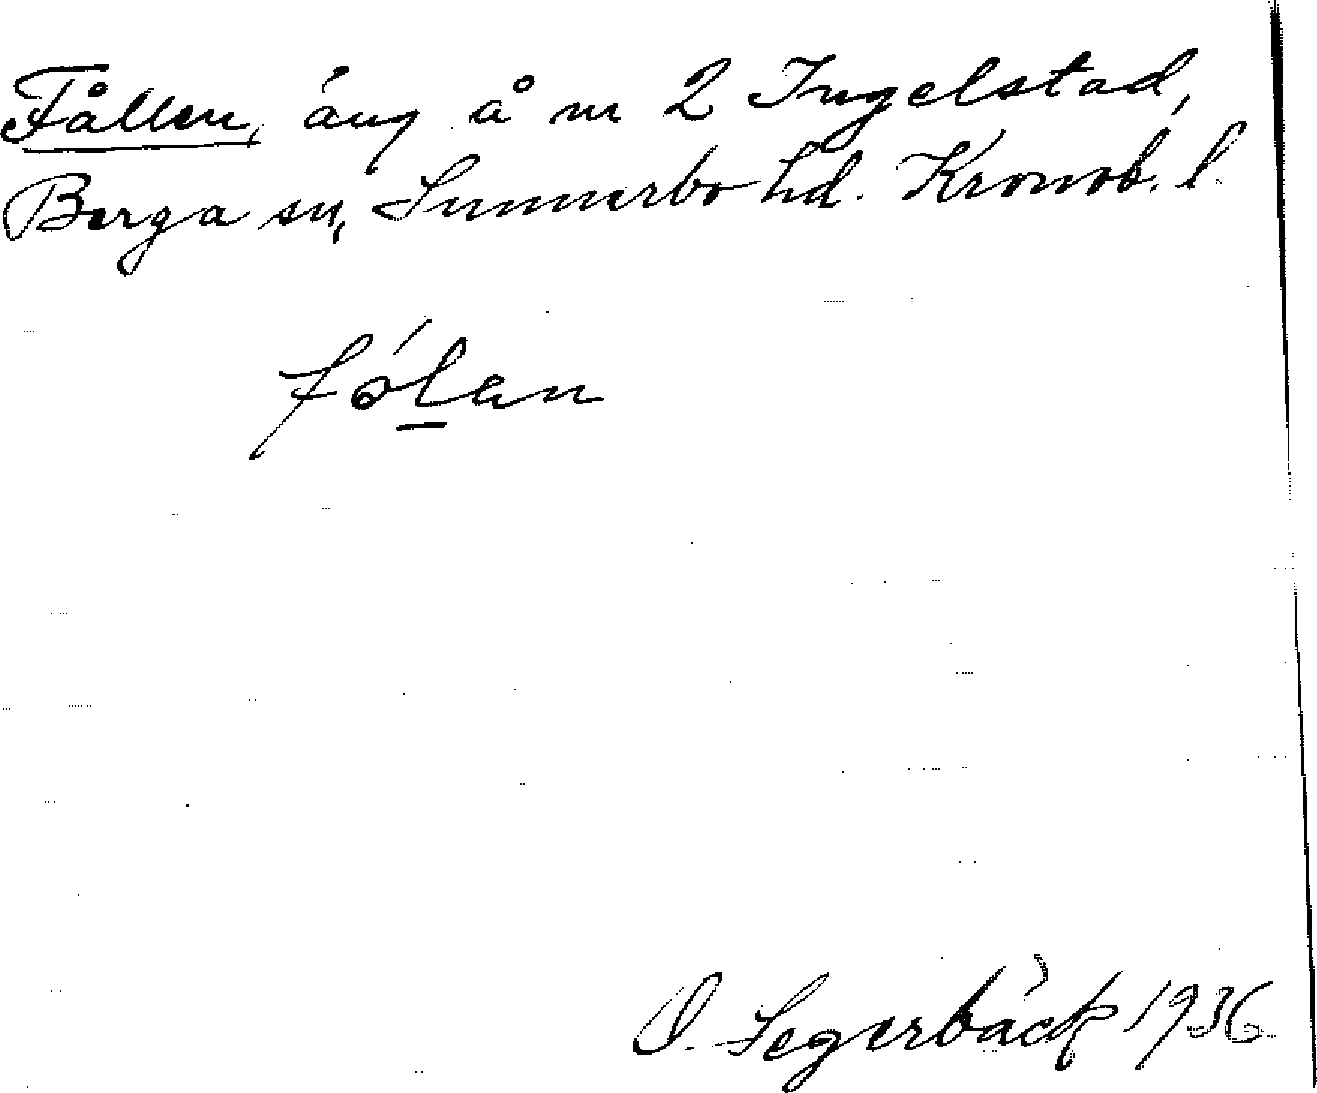 Fållen, äng å nr 2 Ingelstad,
Berga sn, Sunnerbo hd. Kronob. l.
fólan
O. Segerbäck 1936